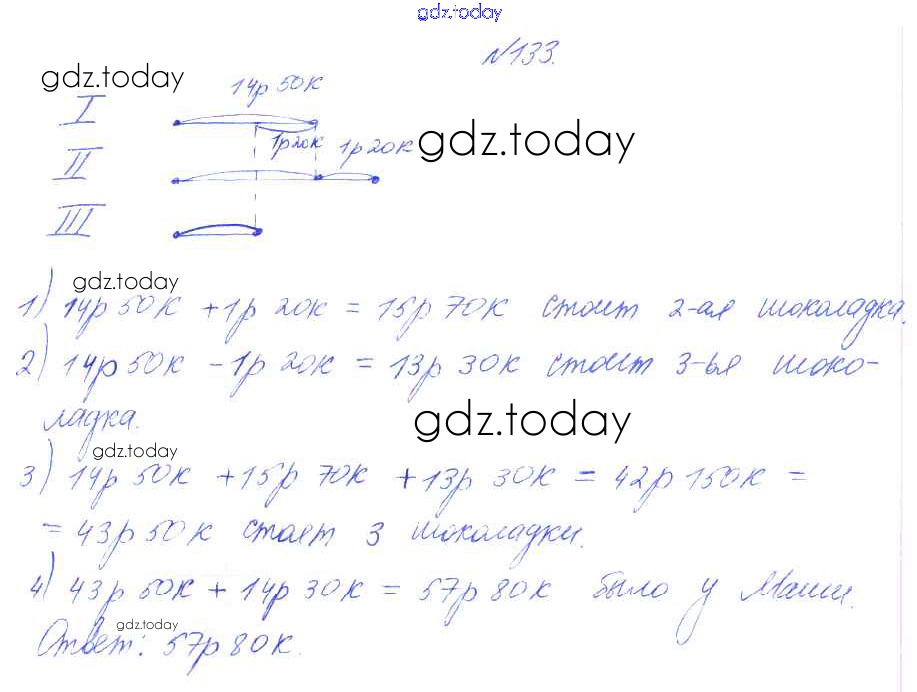 gdz.today
№133.
gdz.today
14р 50к
I
1р20к 1р20к gdz.today
II
III
gdz.today
1) 14р 50к + 1р 20к = 15р 70к стоит 2-ая шоколадка.
2) 14р 50к - 1р 20к = 13р 30к стоит 3-ья шоко-
ладка.
gdz.today
gdz.today
3) 14р 50к + 15р 70к + 13р 30к = 42р 150к =
= 43р 50к стоят 3 шоколадки.
4) 43р 50к + 14р 30к = 57р 80к было у Маши.
gdz.today
Ответ: 57р 80к.